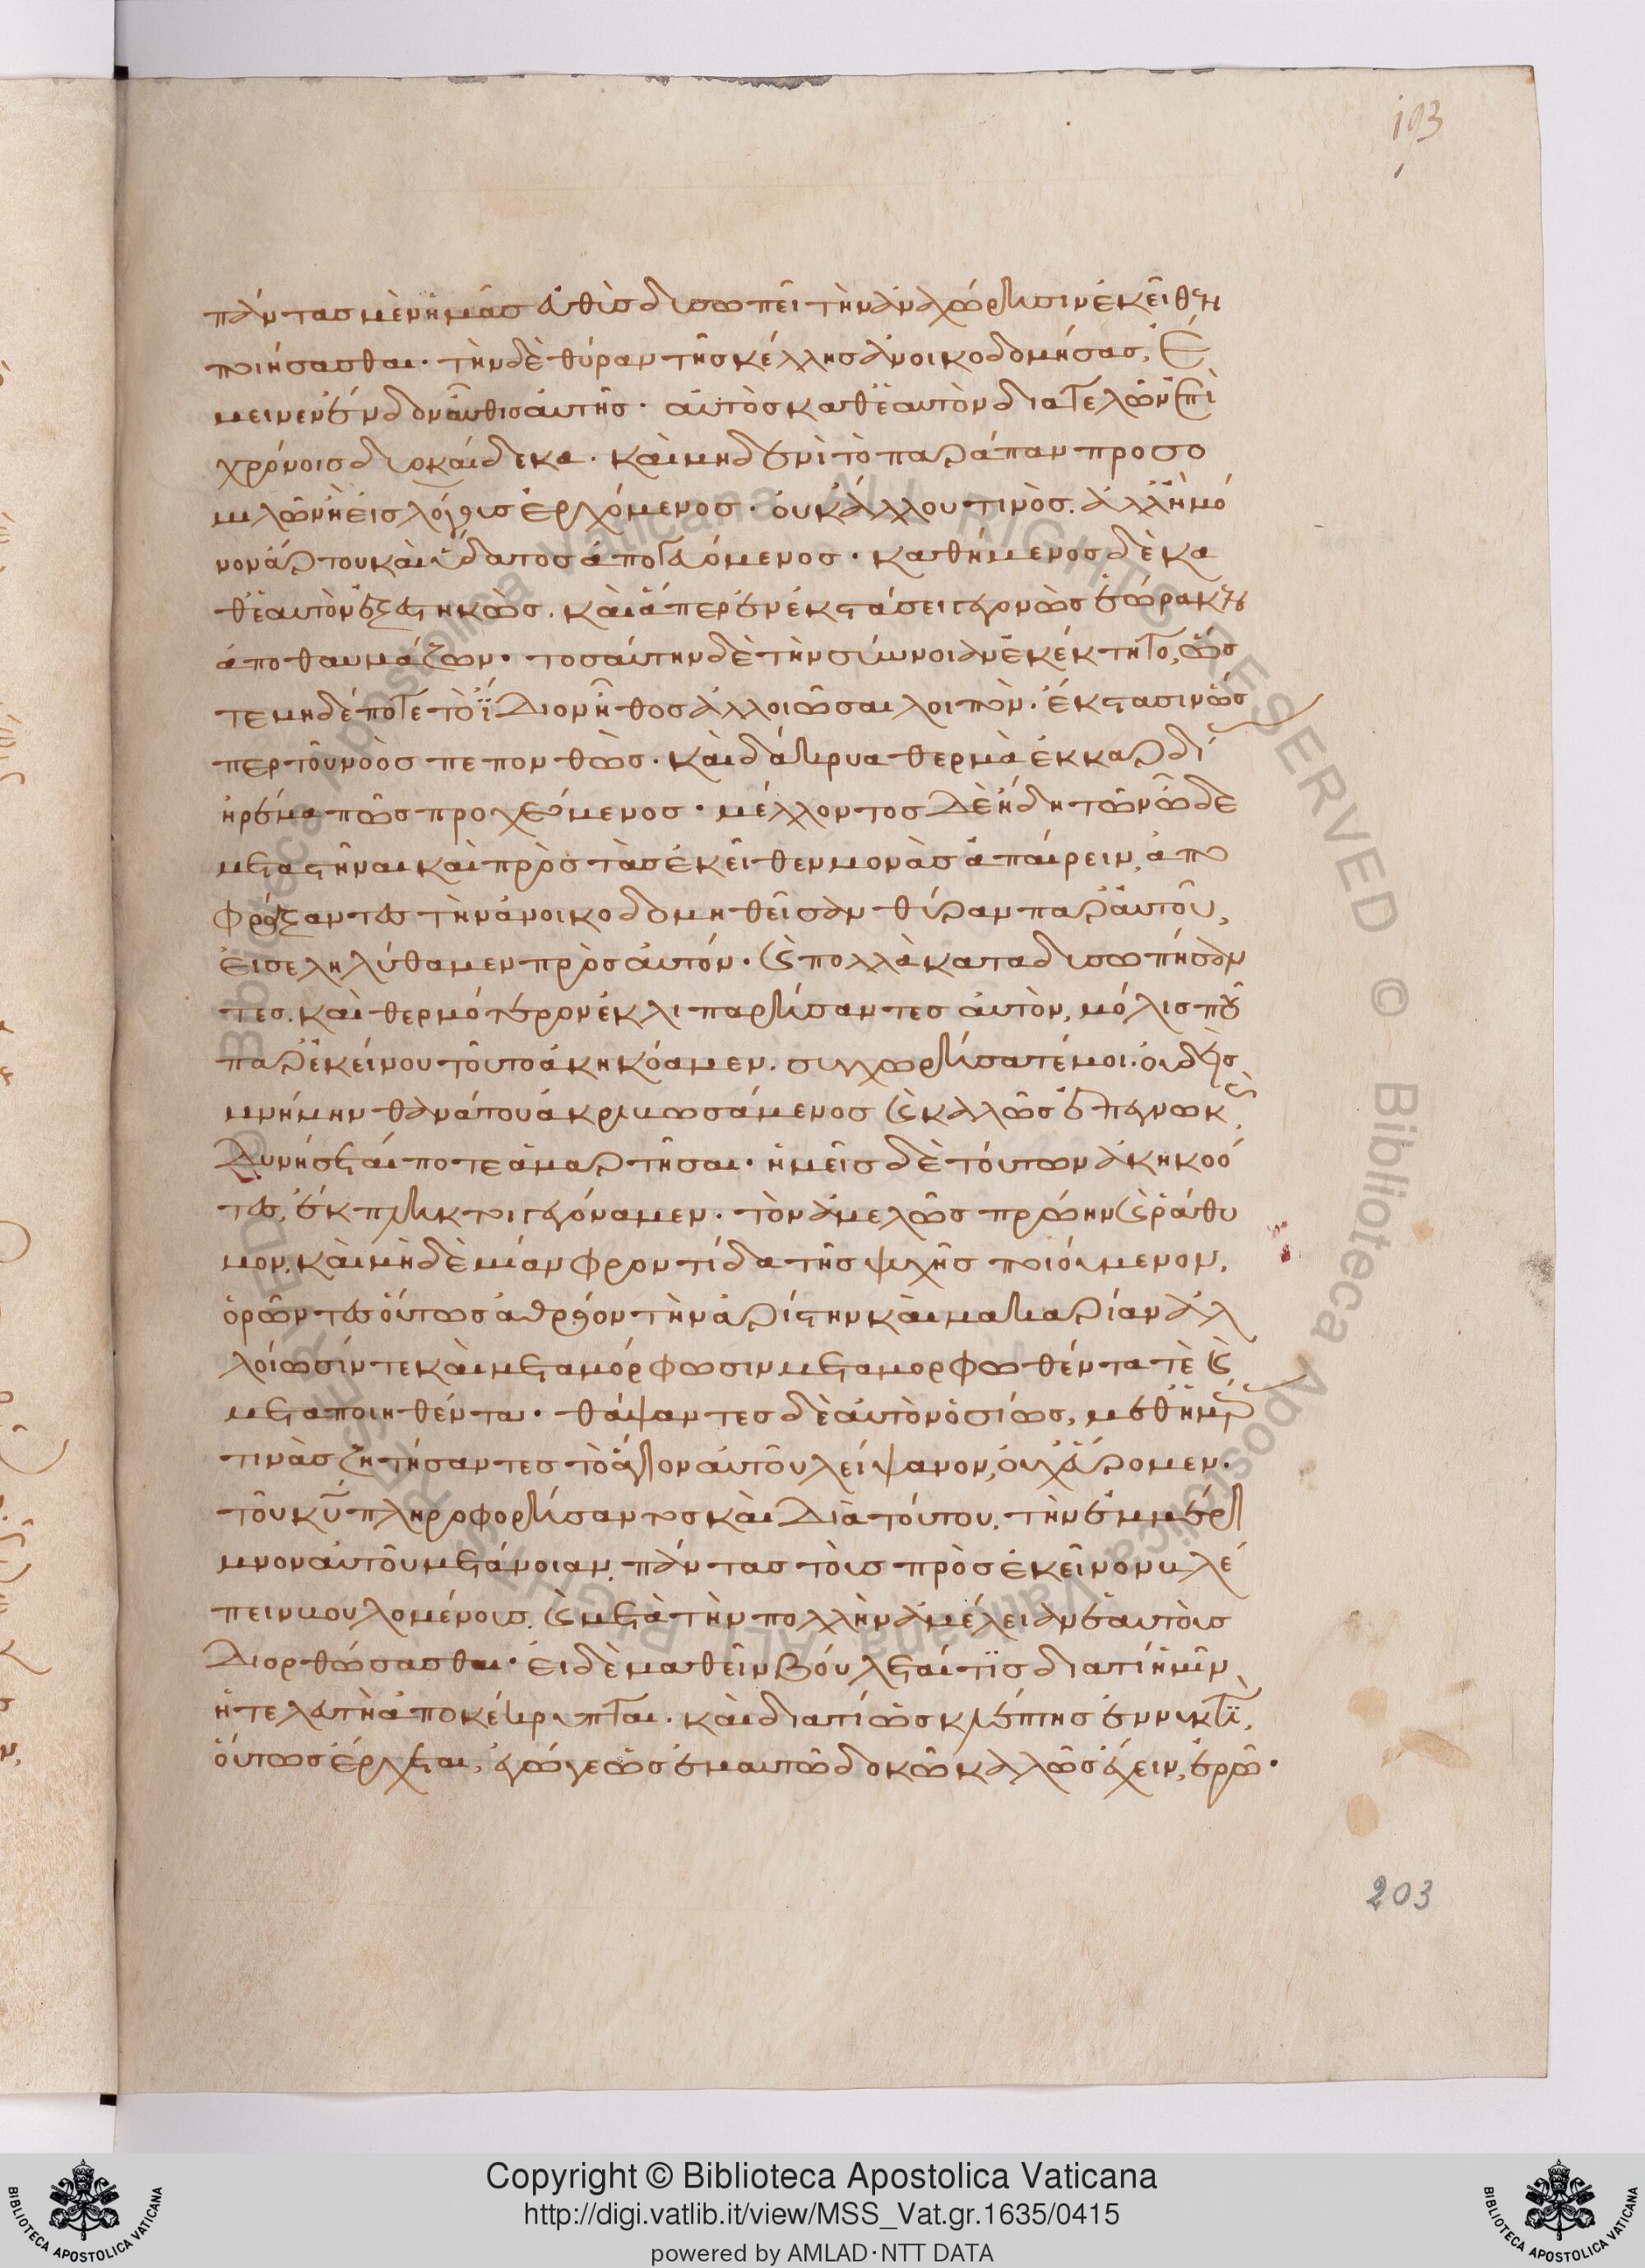 193
πάντας μὲν ἡμᾶς εὐθὺς δυσωπεῖ τὴν ἀναχώρησιν ἐκεῖθεν
ποιήσασθαι· τὴν δὲ θύραν τῆς κέλλης ἀνοικοδομήσας, ἔ
μεινεν ἔνδον αὖθις αὐτῆς· αὐτὸς καθ' ἑαυτὸν διατελῶν ἐπὶ
χρόνοις δυοκαίδεκα· καὶ μηδενὶ τὸ παράπαν προσο
μιλῶν ἢ εἰς λόγους ἐρχόμενος· οὐκ ἄλλου τινὸς. ἀλλ' ἢ μό
νον ἄρτου καὶ ὕδατος ἀπογευόμενος· καθήμενος δὲ κα
θ' ἑαυτὸν ἐξεστηκὼς. καὶ ἅπερ ἐν ἐκστάσει γεγονὼς ἑώρακεν
ἀποθαυμάζων· τοσαύτην δὲ τὴν σύννοιαν ἐκέκτητο, ὥς
τε μηδέποτε τὸ ἴδιον ἦθος ἀλλοιῶσαι λοιπὸν· ἔκστασιν ὥς
περ τοῦ νοὸς πεπονθὼς· καὶ δάκρυα θερμὰ ἐκ καρδί
ἠρέμα πῶς προχεόμενος· μέλλοντος δὲ ἤδη τῶν ὧδε
μεταστῆναι καὶ πρὸς τὰς ἐκεῖθεν μονὰς ἀπαίρειν, ἀπο
φράξαντες τὴν ἀνοικοδομηθεῖσαν θύραν παρ' αὐτοῦ,
εἰσεληλύθαμεν πρὸς αὐτόν· καὶ πολλὰ καταδυσωπήσαν
τες. καὶ θερμότερον ἐκλιπαρήσαντες αὐτὸν, μόλις που
παρ' ἐκείνου τοῦτο ἀκηκόαμεν. συγχωρήσατέ μοι. οὐδεὶς
μνήμην θανάτου ἀκριβωσάμενος καὶ καλῶς ἐπεγνωκὼς
δυνήσεταί ποτε ἁμαρτῆσαι· ἡμεῖς δὲ τούτων ἀκηκοό
τες, ἔκπληκτοι γεγόναμεν· τὸν ἀμελῶς πρώην καὶ ῥάθυ
μον. καὶ μὴδὲ μίαν φροντίδα τῆς ψυχῆς ποιούμενον,
ὁρῶντες οὕτως ἀθρόον τὴν ἀρίστην καὶ μακαρίαν ἀλ
λοίωσίν τε καὶ μεταμόρφωσιν μεταμορφωθέντα τὲ καὶ
μεταποιηθέντα· θάψαντες δὲ αὐτὸν ὁσίως, μεθ' ἡμέρ
τινὰς ζητήσαντες τὸ ἅγιον αὐτοῦ λείψανον, οὐχ' εὕρομεν·
τοῦ κυ πληροφορήσαντος καὶ διὰ τούτου. τὴν ἐμμέρι
μνον αὐτοῦ μετάνοιαν. πάντας τοῖς πρὸς ἐκεῖνον βλέ
πειν βουλομένοις. καὶ μετὰ τὴν πολλὴν ἀμέλειαν ἑαυτοῖς
διορθώσασθαι· εἰ δὲ μαθεῖν βούλεταί τις διατί ἡμῖν
ἡ τελευτὴ ἀποκέκρυπται· καὶ διατί ὡς κλέπτης ἐν νυκτὶ,
οὕτως ἔρχεται, ἐγώγε ὡς ἐμαυτῶ δοκῶ καλῶς ἔχειν, ἐρῶ·
203
Copyright © Biblioteca Apostolica Vaticana
http://digi.vatlib.it/view/MSS_Vat.gr.1635/0415
powered by AMLAD·NTT DATA